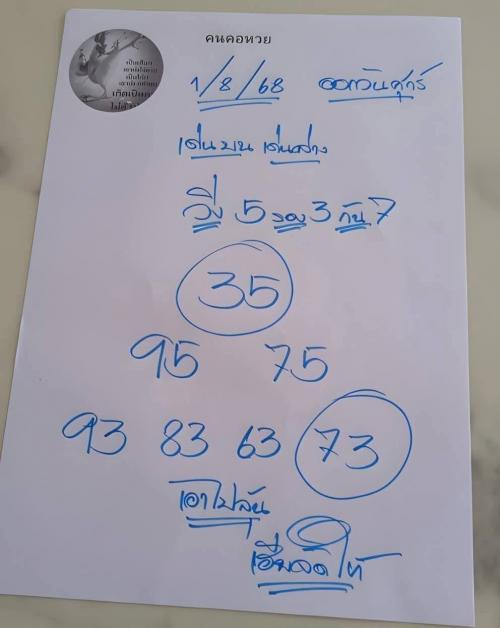 คนคอหวย
เป็นเสือก
เกิดเป็นคน
1/8/68 ออกวันศุกร์
เด่นบน เด่นล่าง
วิ่ง 5 รอง 3 กัน 7
35
95 75
93 83 63 73
เอาไปลุ้น